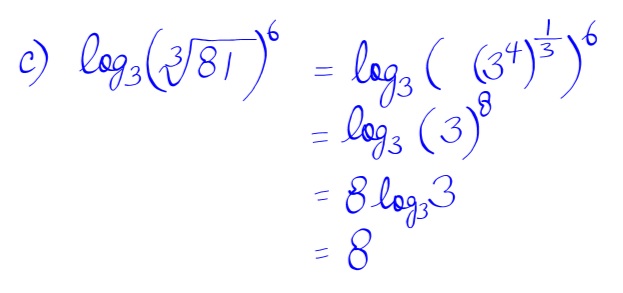 c) log₃(∛81)⁶ = log₃((3⁴)^(1/3))⁶
= log₃(3)⁸
= 8 log₃3
= 8